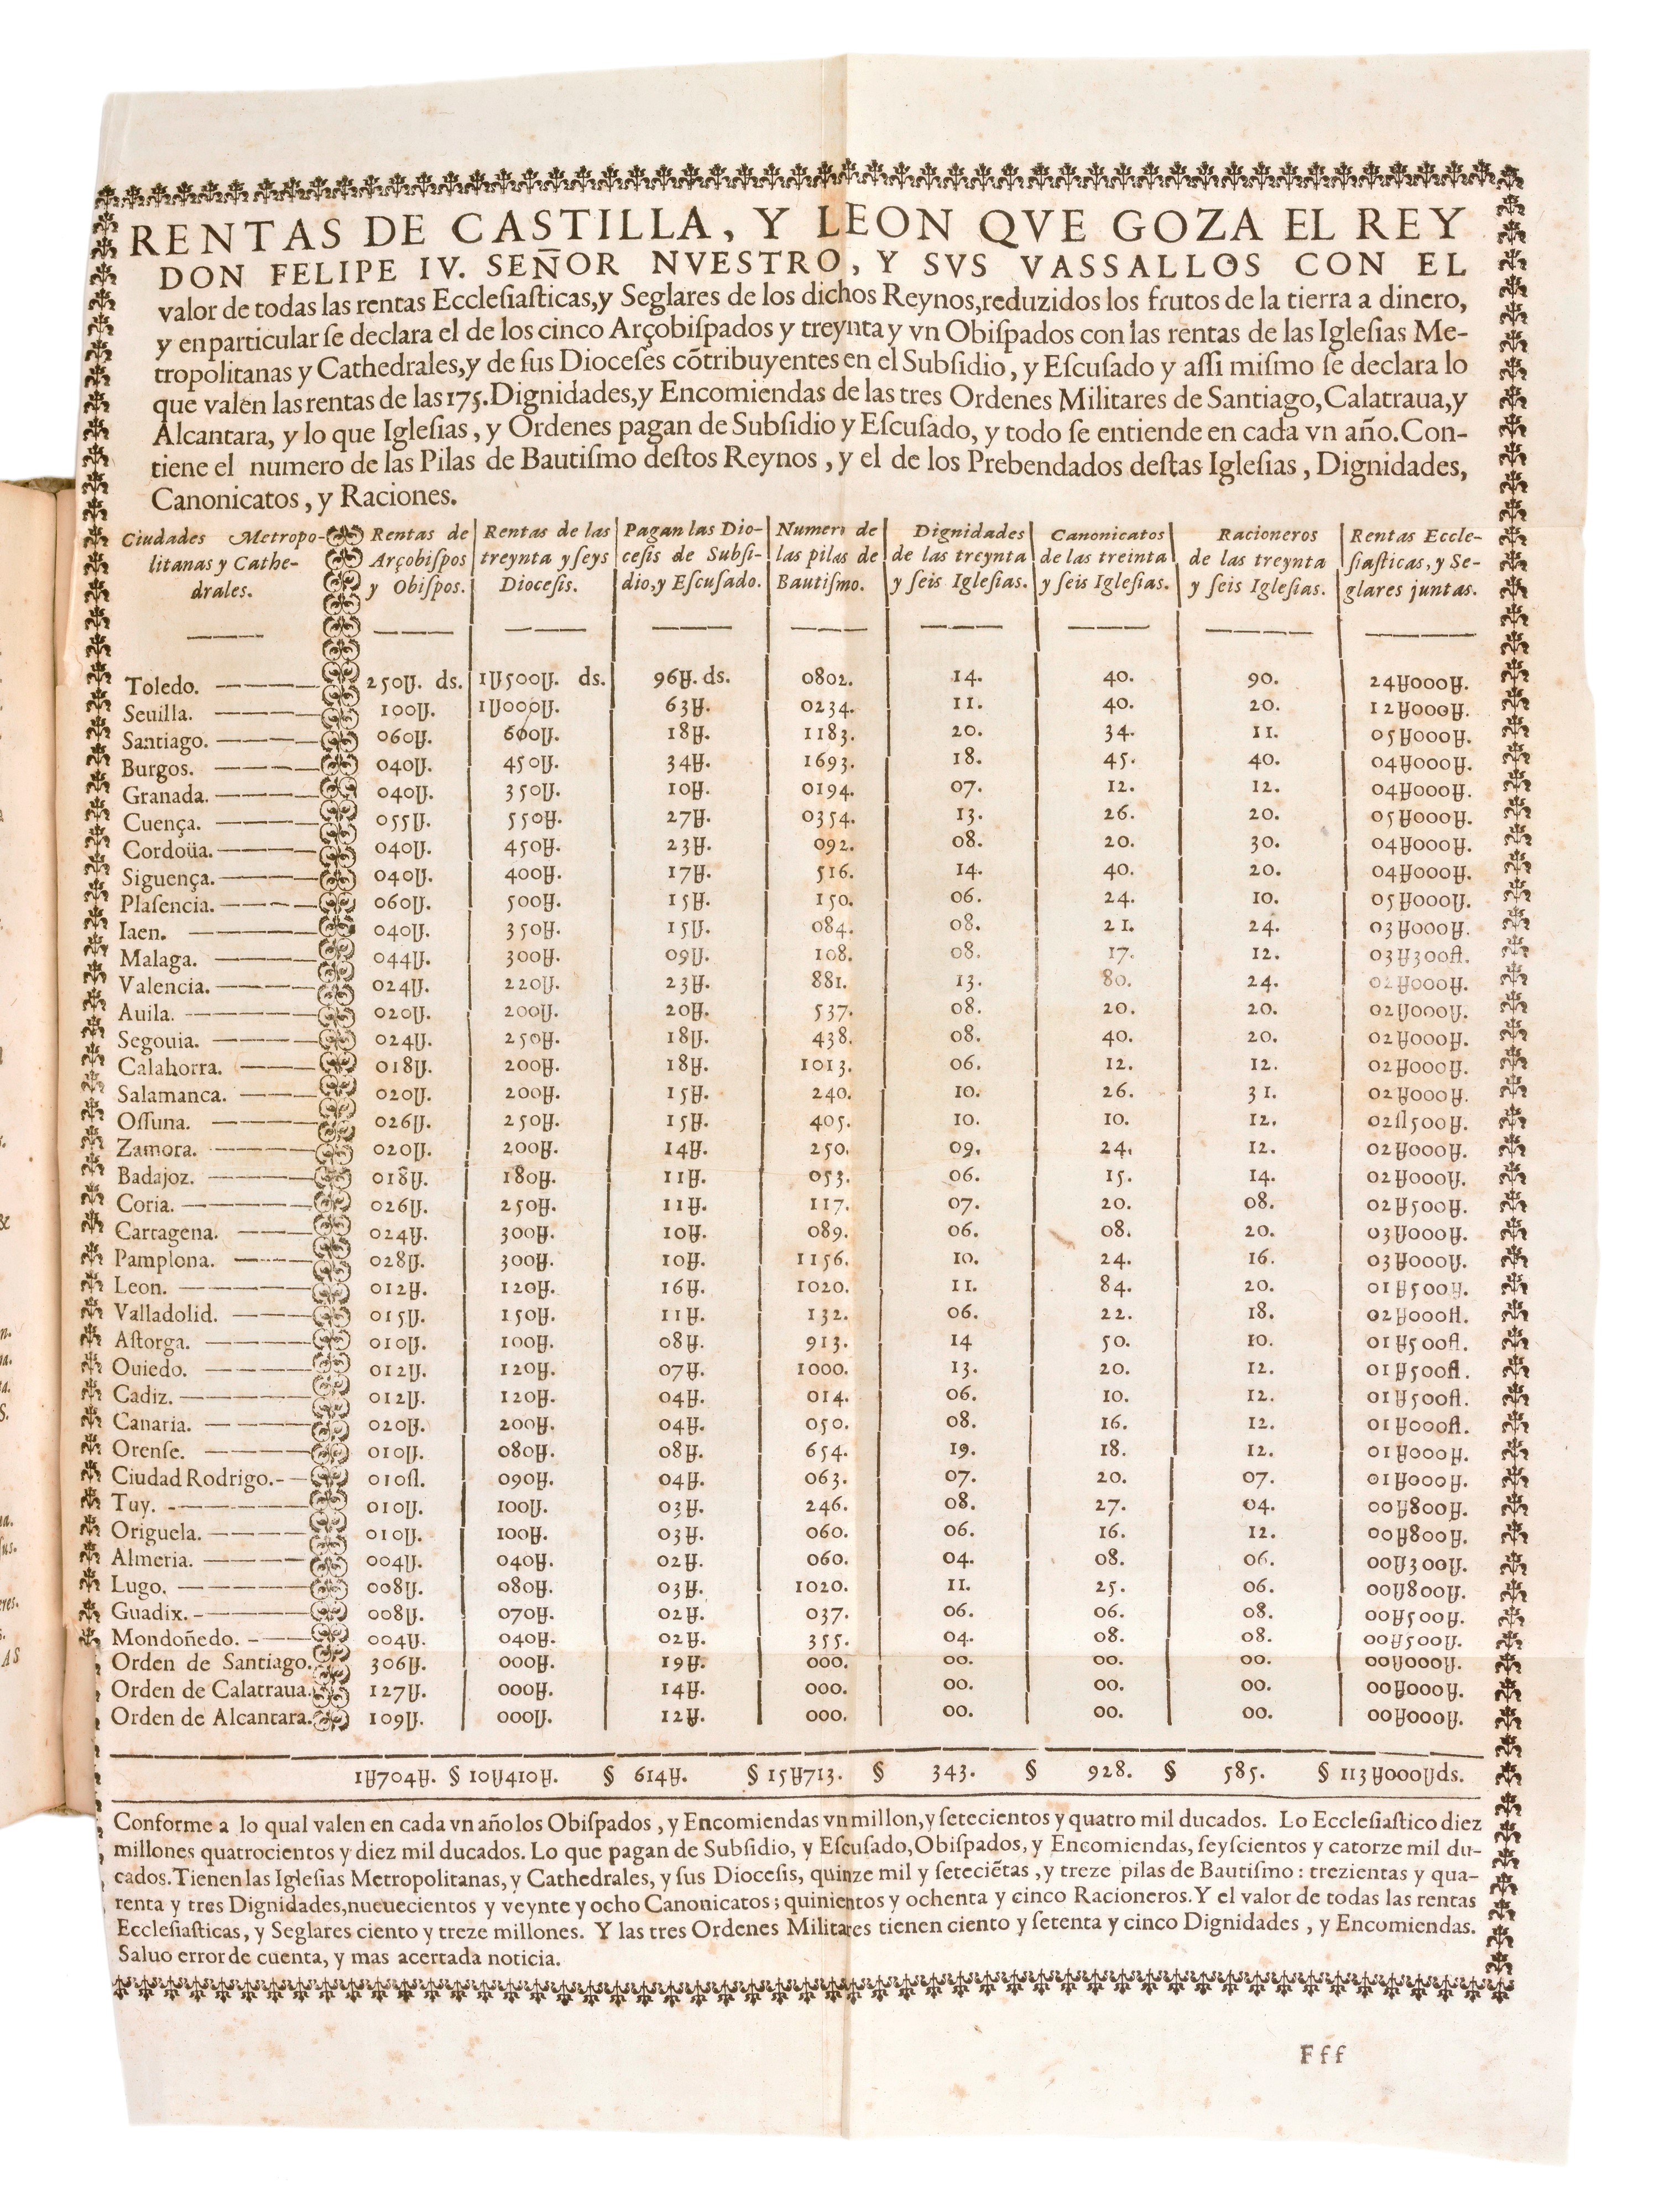 RENTAS DE CASTILLA, Y LEON QVE GOZA EL REY
DON FELIPE IV. SEÑOR NVESTRO, Y SVS VASSALLOS CON EL
valor de todas las rentas Ecclesiasticas,y Seglares de los dichos Reynos,reduzidos los frutos de la tierra a dinero,
y en particular se declara el de los cinco Arçobispados y treynta y vn Obispados con las rentas de las Iglesias Me-
tropolitanas y Cathedrales,y de sus Dioceses cõtribuyentes en el Subsidio, y Escusado y assi mismo se declara lo
que valen las rentas de las 175.Dignidades,y Encomiendas de las tres Ordenes Militares de Santiago,Calatraua,y
Alcantara, y lo que Iglesias, y Ordenes pagan de Subsidio y Escusado, y todo se entiende en cada vn año.Con-
tiene el numero de las Pilas de Bautismo destos Reynos, y el de los Prebendados destas Iglesias, Dignidades,
Canonicatos, y Raciones.
Ciudades Metropo- Rentas de Rentas de las Pagan las Dio- Numero de Dignidades Canonicatos Racioneros Rentas Eccle-
litanas y Cathe- Arçobispos treynta y seys cesis de Subsi- las pilas de de las treynta de las treinta de las treynta siasticas, y Se-
drales. y Obispos. Diocesis. dio,y Escusado. Bautismo. y seis Iglesias. y seis Iglesias. y seis Iglesias. glares juntas.
Toledo. 250U. ds. 1U500U. ds. 96U. ds. 0802. 14. 40. 90. 24U000U.
Seuilla. 100U. 1U000U. 63U. 0234. 11. 40. 20. 12U000U.
Santiago. 060U. 600U. 18U. 1183. 20. 34. 11. 05U000U.
Burgos. 040U. 450U. 34U. 1693. 18. 45. 40. 04U000U.
Granada. 040U. 350U. 10U. 0194. 07. 12. 12. 04U000U.
Cuença. 055U. 550U. 27U. 0354. 13. 26. 20. 05U000U.
Cordoüa. 040U. 450U. 23U. 092. 08. 20. 30. 04U000U.
Siguença. 040U. 400U. 17U. 516. 14. 40. 20. 04U000U.
Plasencia. 060U. 500U. 15U. 150. 06. 24. 10. 05U000U.
Iaen. 040U. 350U. 15U. 084. 08. 21. 24. 03U000U.
Malaga. 044U. 300U. 09U. 108. 08. 17. 12. 03U300U.
Valencia. 024U. 220U. 23U. 881. 13. 80. 24. 02U000U.
Auila. 020U. 200U. 20U. 537. 08. 20. 20. 02U000U.
Segouia. 024U. 250U. 18U. 438. 08. 40. 20. 02U000U.
Calahorra. 018U. 200U. 18U. 1013. 06. 12. 12. 02U000U.
Salamanca. 020U. 200U. 15U. 240. 10. 26. 31. 02U000U.
Ossuna. 026U. 250U. 15U. 405. 10. 10. 12. 02U500U.
Zamora. 020U. 200U. 14U. 250. 09. 24. 12. 02U000U.
Badajoz. 018U. 180U. 11U. 053. 06. 15. 14. 02U000U.
Coria. 026U. 250U. 11U. 117. 07. 20. 08. 02U500U.
Cartagena. 024U. 300U. 10U. 089. 06. 08. 20. 03U000U.
Pamplona. 028U. 300U. 10U. 1156. 10. 24. 16. 03U000U.
Leon. 012U. 120U. 16U. 1020. 11. 84. 20. 01U500U.
Valladolid. 015U. 150U. 11U. 132. 06. 22. 18. 02U000U.
Astorga. 010U. 100U. 08U. 913. 14 50. 10. 01U500U.
Ouiedo. 012U. 120U. 07U. 1000. 13. 20. 12. 01U500U.
Cadiz. 012U. 120U. 04U. 014. 06. 10. 12. 01U500U.
Canaria. 020U. 200U. 04U. 050. 08. 16. 12. 01U000U.
Orense. 010U. 080U. 08U. 654. 19. 18. 12. 01U000U.
Ciudad Rodrigo. 010U. 090U. 04U. 063. 07. 20. 07. 01U000U.
Tuy. 010U. 100U. 03U. 246. 08. 27. 04. 00U800U.
Origuela. 010U. 100U. 03U. 060. 06. 16. 12. 00U800U.
Almeria. 004U. 040U. 02U. 060. 04. 08. 06. 00U300U.
Lugo. 008U. 080U. 03U. 1020. 11. 25. 06. 00U800U.
Guadix. 008U. 070U. 02U. 037. 06. 06. 08. 00U500U.
Mondoñedo. 004U. 040U. 02U. 355. 04. 08. 08. 00U500U.
Orden de Santiago. 306U. 000U. 19U. 000. 00. 00. 00. 00U000U.
Orden de Calatraua. 127U. 000U. 14U. 000. 00. 00. 00. 00U000U.
Orden de Alcantara. 109U. 000U. 12U. 000. 00. 00. 00. 00U000U.
1U704U. § 10U410U. § 614U. § 15U713. § 343. § 928. § 585. § 113U000Uds.
Conforme a lo qual valen en cada vn año los Obispados, y Encomiendas vn millon,y setecientos y quatro mil ducados. Lo Ecclesiastico diez
millones quatrocientos y diez mil ducados. Lo que pagan de Subsidio, y Escusado,Obispados, y Encomiendas, seyscientos y catorze mil du-
cados.Tienen las Iglesias Metropolitanas, y Cathedrales, y sus Diocesis, quinze mil y seteciẽtas, y treze pilas de Bautismo: trezientas y qua-
renta y tres Dignidades,nueuecientos y veynte y ocho Canonicatos; quinientos y ochenta y cinco Racioneros.Y el valor de todas las rentas
Ecclesiasticas, y Seglares ciento y treze millones. Y las tres Ordenes Militares tienen ciento y setenta y cinco Dignidades, y Encomiendas.
Saluo error de cuenta, y mas acertada noticia.
Fff